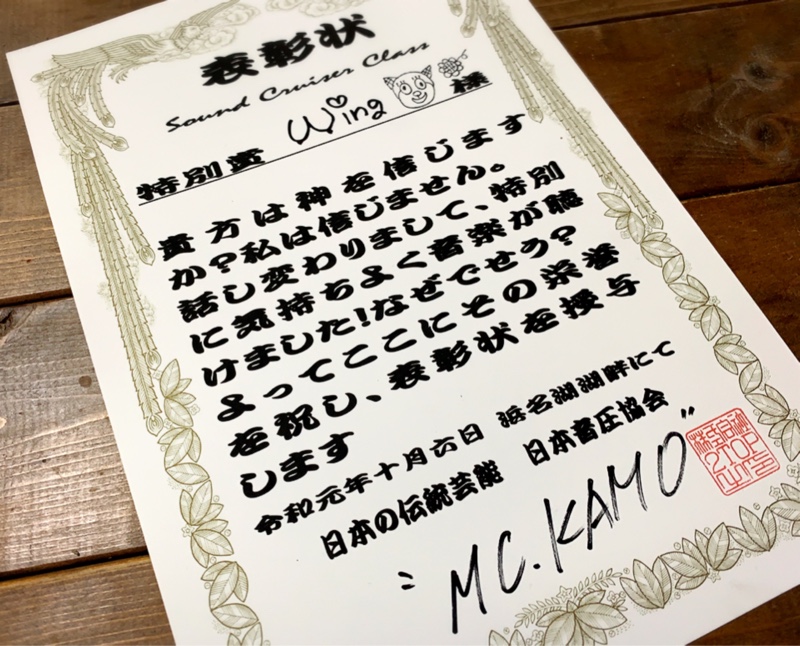 表彰状
Sound Cruiser Class
特別賞 Wing 様
貴方は神を信じます
か?私は信じません。
話し変わりまして、特別
に気持ちよく音楽が聴
けました!なぜでせう?
よってここにその栄誉
を祝し、表彰状を授与
します
令和元年十月六日 浜名湖湖畔にて
日本の伝統芸能 日本音圧協会
〃MC.KAMO〃
2TOP